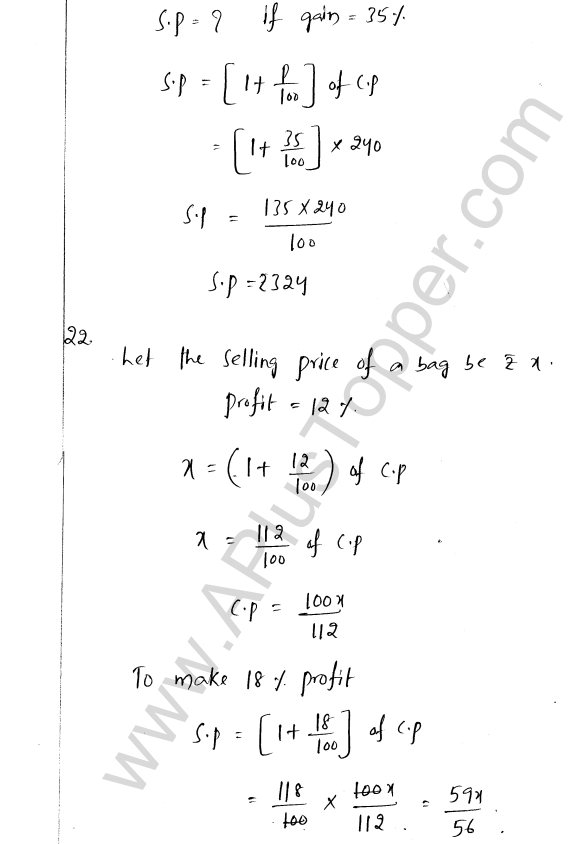 S.p = ? if gain = 35%
S.p = [1 + p/100] of C.p
= [1 + 35/100] × 240
S.p = 135 × 240 / 100
S.p = ₹324
22.
Let the selling price of a bag be ₹ x.
profit = 12%.
x = (1 + 12/100) of C.p
x = 112/100 of C.p
C.p = 100x/112
To make 18% profit
S.p = [1 + 18/100] of C.p
= 118/100 × 100x/112 = 59x/56.
www.APlusTopper.com